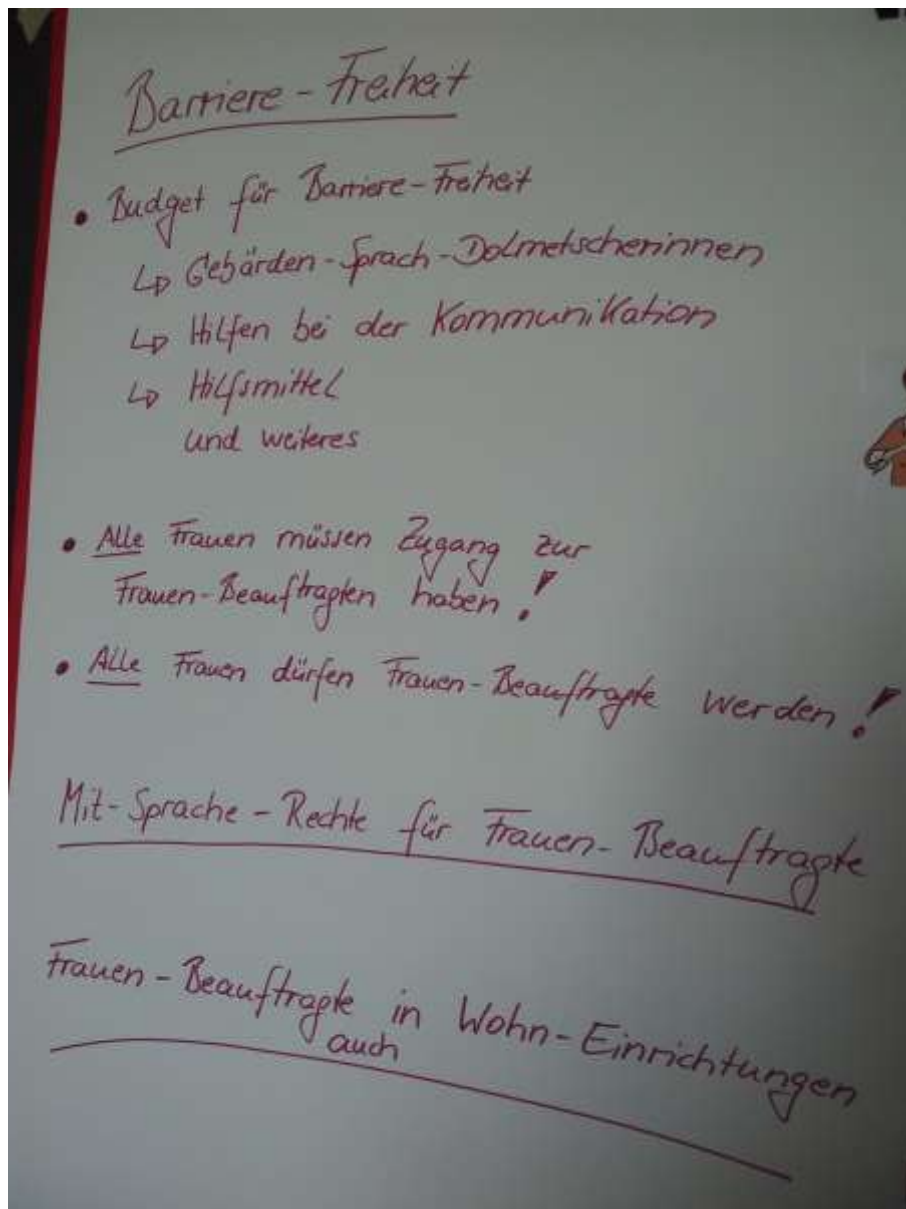 Barriere-Freiheit
• Budget für Barriere-Freiheit
↳ Gebärden-Sprach-Dolmetscherinnen
↳ Hilfen bei der Kommunikation
↳ Hilfsmittel
und weiteres
• Alle Frauen müssen Zugang zur
Frauen-Beauftragten haben!
• Alle Frauen dürfen Frauen-Beauftragte werden!
Mit-Sprache-Rechte für Frauen-Beauftragte
Frauen-Beauftragte in Wohn-Einrichtungen
auch